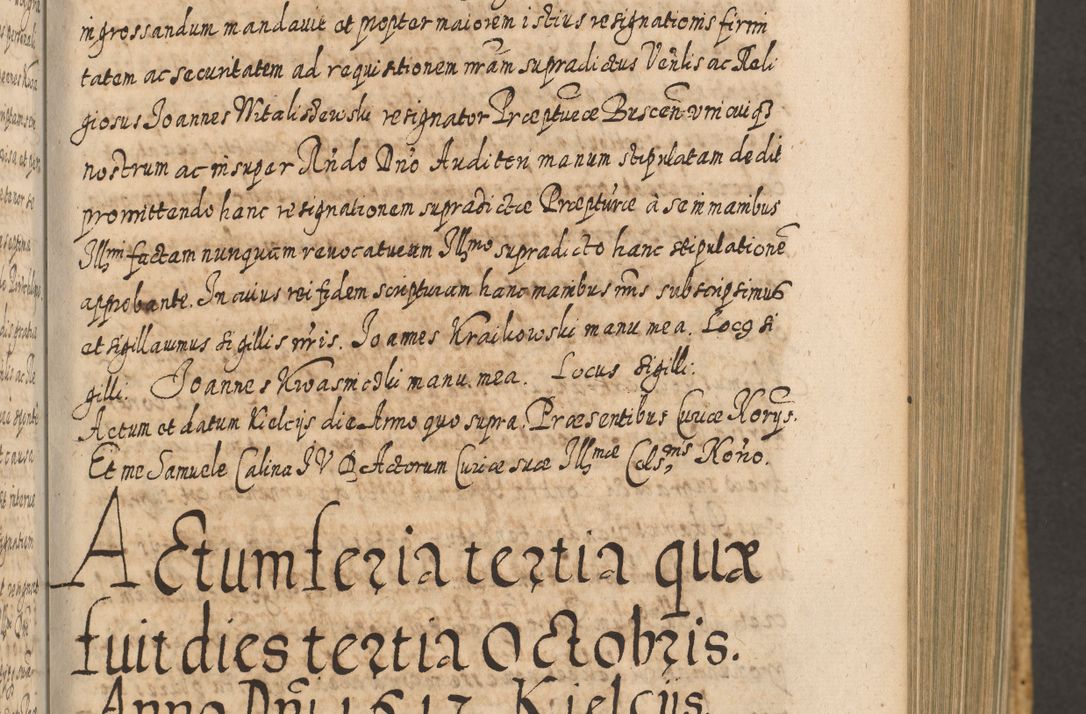 ingrossandum mandavit et propter maiorem istius resignationis firmi
tatem ac securitatem ad requisitionem nram supradictus Venlis ac Reli
giosus Joannes Witaliszewski resignator Præpturæ Buscen: unicuiq3
nostrum ac insuper Rndo Dno Auditori manum stipulatam dedit
promittendo hanc resignationem supradictæ Præpturæ à se in manibus
Illmi factam nunquam revocaturum Illmo supradicto hanc stipulatione
approbante. In cuius rei fidem scripturam hanc manibus nris subscripsimus
et sigillavimus sigillis nris. Joannes Kraikowski manu mea. Locq si
gilli. Joannes Kwasnicki manu mea. Locus sigilli.
Actum et datum Kielcijs die Anno quo supra. Præsentibus Curiæ Norijs.
Et me Samuele Calina JVD Actorum Curiæ suæ Illmæ Celsnis Norio.
Actum feria tertia quæ
fuit dies tertia Octobris.
Anno Dni 1617 Kielcijs.